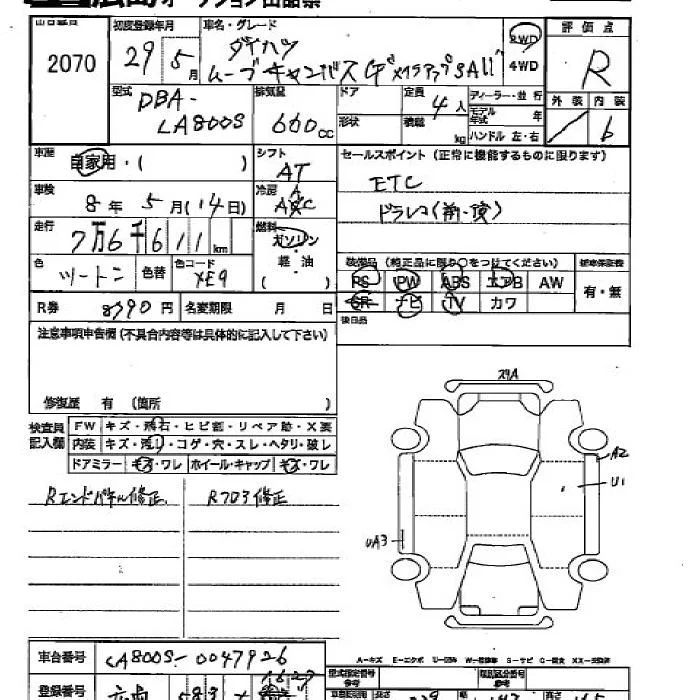 広島オークション出品票
出品番号 初度登録年月 車名・グレード 評価点
2070 29年5月 ダイハツ 2WD R
ムーブキャンバス Gメイクアップ SAⅢ 4WD
型式 排気量 ドア 定員 ディーラー・並行 外装 内装
DBA- 4人 モデル年式 年 6
LA800S 660cc 形状 積載 kg ハンドル 左・右
車歴 シフト セールスポイント (正常に機能するものに限ります)
自家用・( ) AT
車検 冷房 ETC
8年5月(14日) AAC ドラレコ(前・後)
走行 燃料
7万6千611km ガソリン
色 色替 色コード 軽・油 装備品(純正品に限り○をつけてください) 新車保証書
ツートン XE9 ( ) PS PW ABS エアB AW 有・無
R券 8790円 名変期限 月 日 SR ナビ TV カワ
注意事項申告欄(不具合内容等は具体的に記入して下さい) 後日品
修復歴 有 (箇所 )
検査員記入欄 FW キズ・飛石・ヒビ割・リペア跡・X要
内装 キズ・汚レ・コゲ・穴・スレ・ヘタリ・破レ
ドアミラー キズ・ワレ ホイール・キャップ キズ・ワレ
Rエンドパネル修正 Rフロア修正
A2
U1
UA3
A-キズ E-エクボ U-凹み W-補修車 S-サビ C-腐食 XX-交換済
車台番号 LA800S-0047926 型式指定番号 参考 類別区分番号 参考
登録番号 広島 583